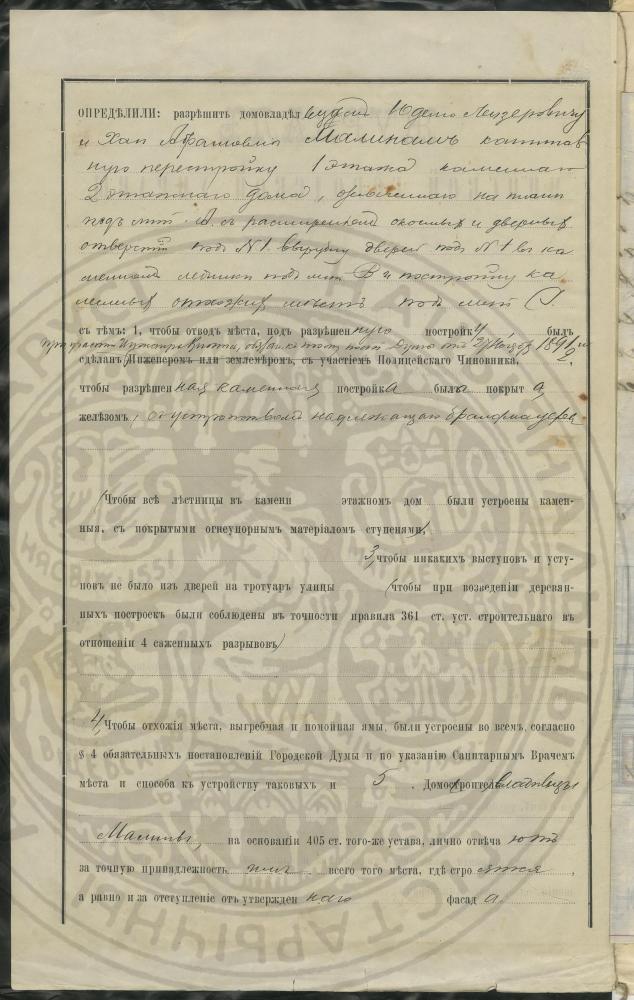 ОПРЕДѢЛИЛИ: разрѣшить домовладѣл Лейзеровичу
и Малинамъ капиталь
ную перестройку 1 этажа каменнаго
2 этажнаго дома, означеннаго на планѣ
подъ лит. А. съ расширеніемъ оконныхъ и дверныхъ
отверстій подъ № 1. дверей подъ № 1 въ ка
менной подъ лит В и постройку ка
менныхъ отхожихъ мѣстъ подъ лит
съ тѣмъ: 1, чтобы отводъ мѣста, подъ разрѣшен ную постройку былъ
Думы отъ 27 1891
сдѣланъ Инженеромъ или землемѣромъ, съ участіемъ Полицейскаго Чиновника,
чтобы разрѣшен ная каменная постройка была покрыта
желѣзомъ, съ устройствомъ надлежащаго брандмауера
Чтобы всѣ лѣстницы въ камени этажномъ дом были устроены камен-
ныя, съ покрытыми огнеупорнымъ матеріаломъ ступенями,
3, чтобы никакихъ выступовъ и усту-
повъ не было изъ дверей на тротуаръ улицы чтобы при возведеніи деревян-
ныхъ построекъ были соблюдены въ точности правила 361 ст. уст. строительнаго въ
отношеніи 4 саженныхъ разрывовъ
4, Чтобы отхожія мѣста, выгребная и помойная ямы, были устроены во всемъ, согласно
§ 4 обязательныхъ постановленій Городской Думы и по указанію Санитарнымъ Врачемъ
мѣста и способа къ устройству таковыхъ и 5. Домовладѣльцы
Малины, на основаніи 405 ст. того-же устава, лично отвѣча ютъ
за точную принадлежность имъ всего того мѣста, гдѣ стро ятся,
а равно и за отступленіе отъ утвержден наго фасад а.